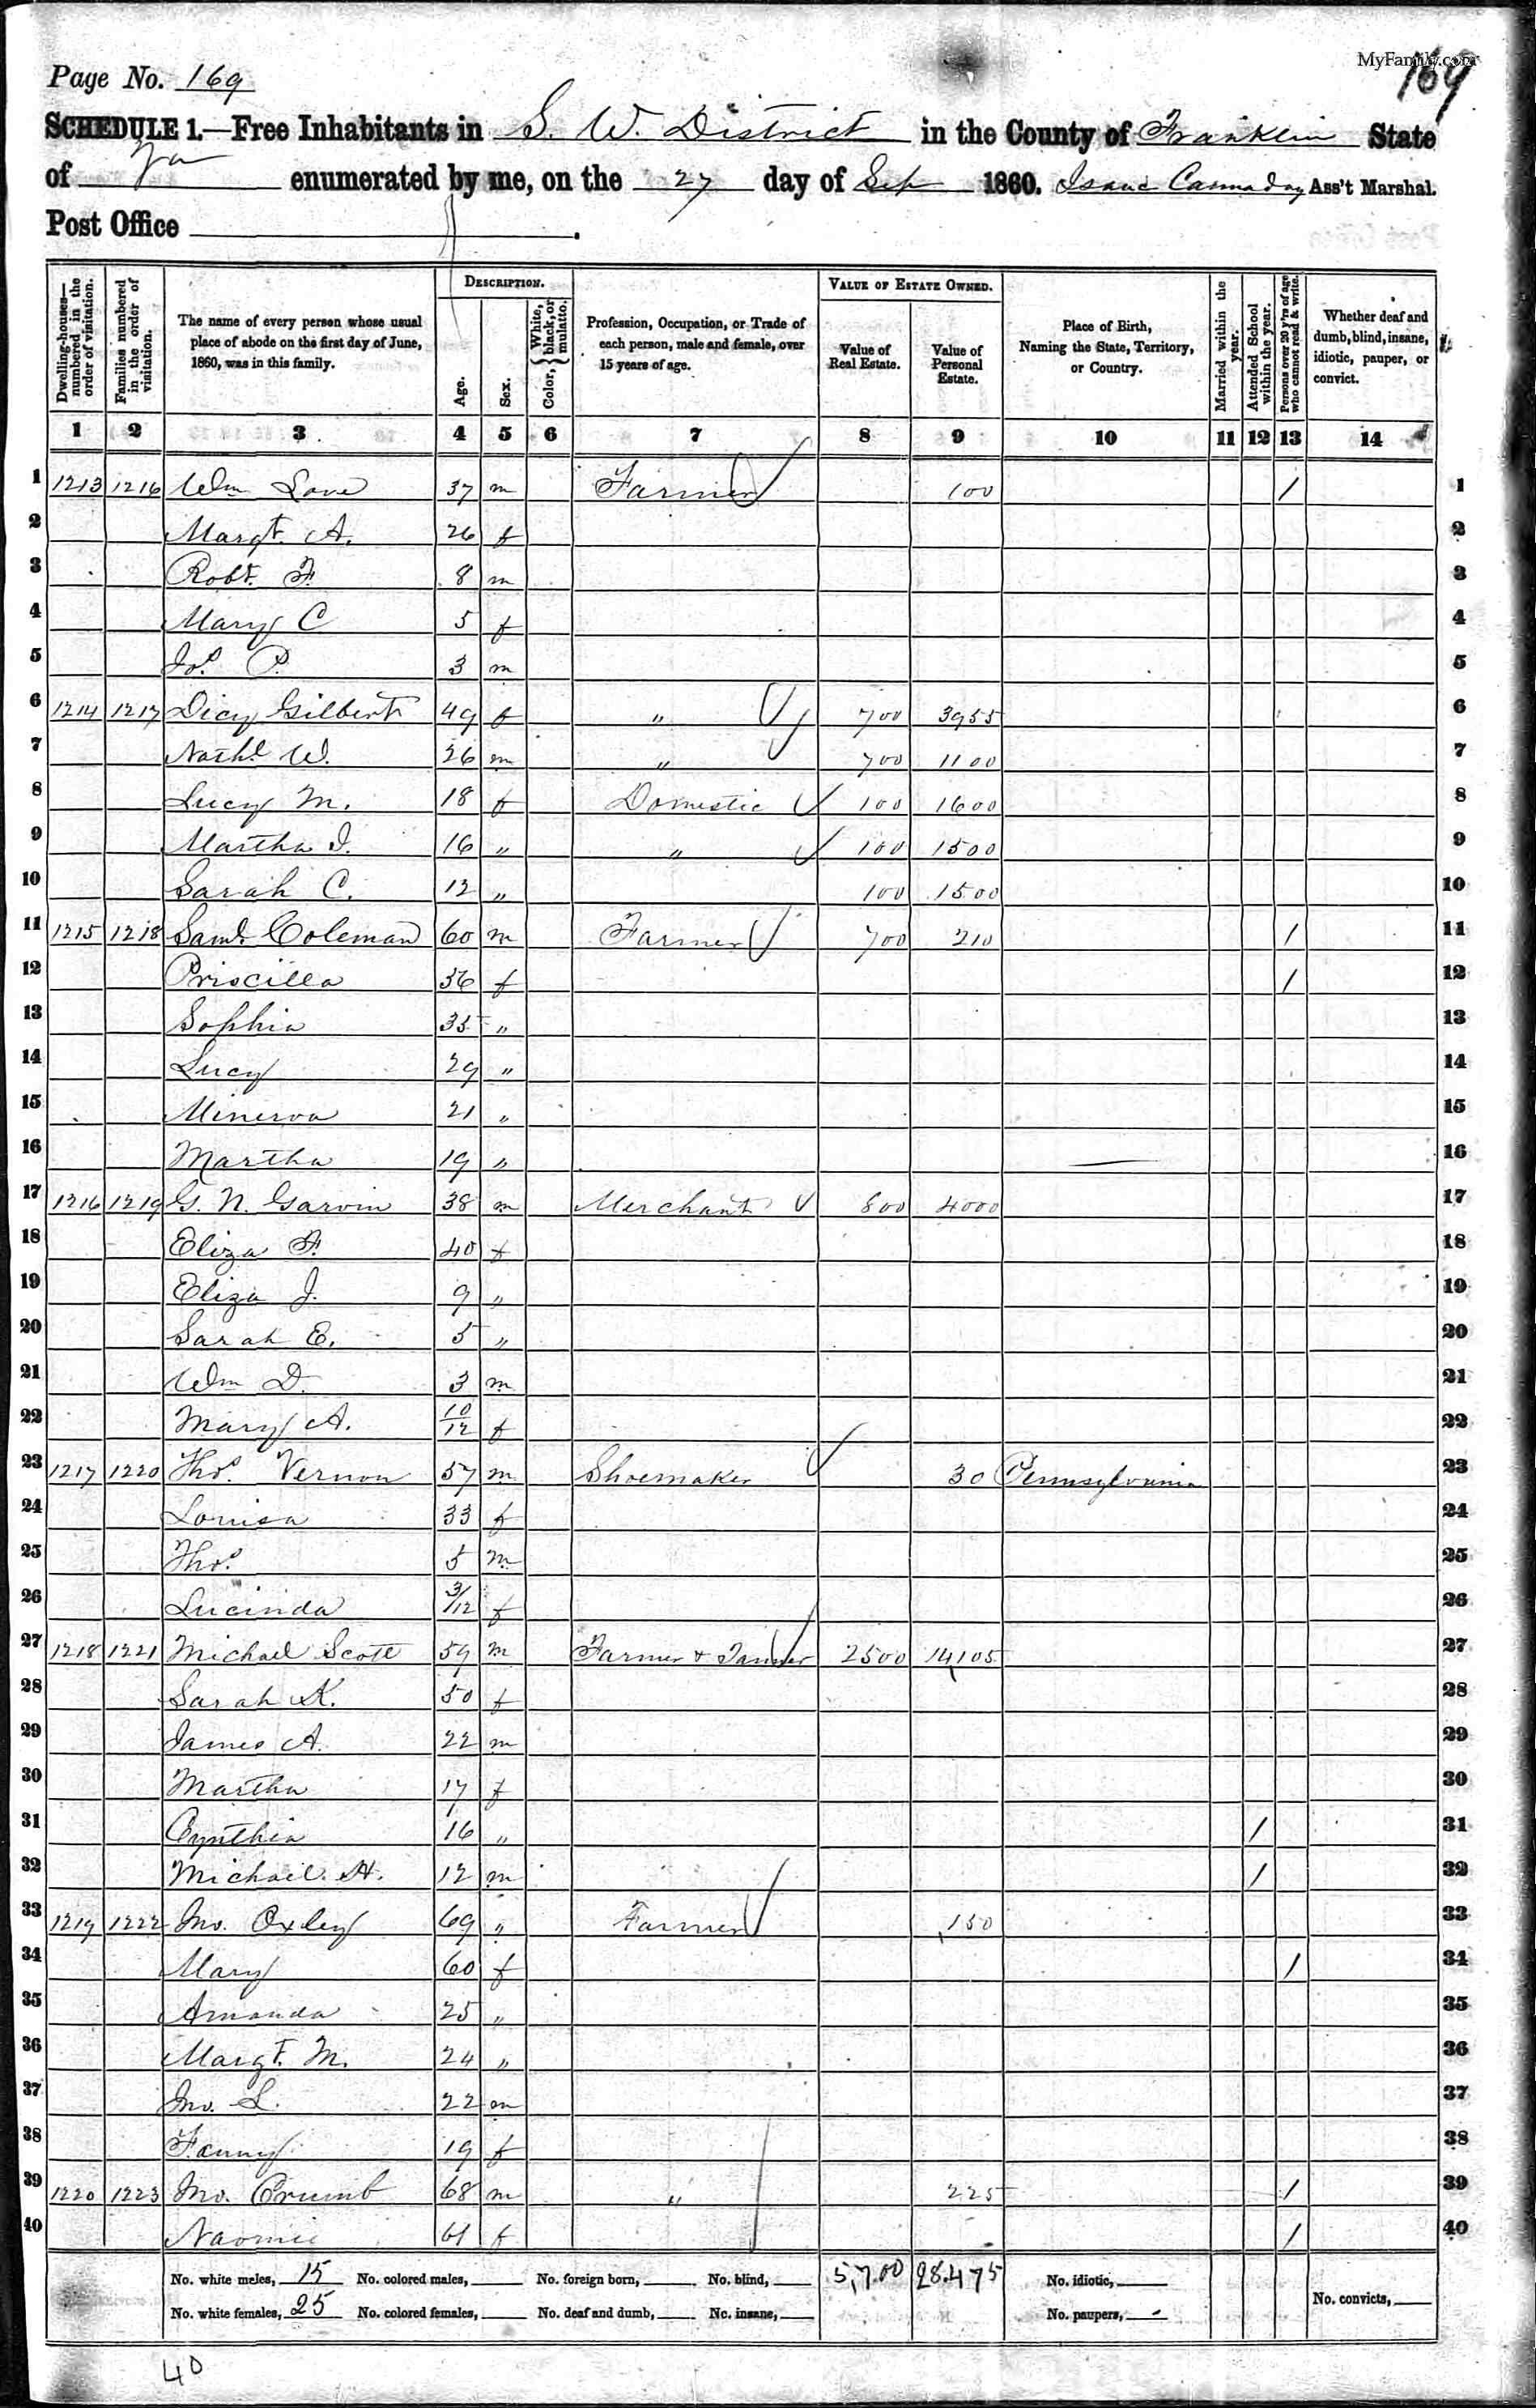 MyFamily.com
Page No. 169
169
SCHEDULE 1.—Free Inhabitants in S. W. District in the County of Franklin State
of Va enumerated by me, on the 27 day of Sep 1860. Isaac Cannaday Ass't Marshal.
Post Office
Dwelling-houses—numbered in the order of visitation.
Families numbered in the order of visitation.
The name of every person whose usual place of abode on the first day of June, 1860, was in this family.
DESCRIPTION.
Age.
Sex.
Color, { White, black, or mulatto.
Profession, Occupation, or Trade of each person, male and female, over 15 years of age.
VALUE OF ESTATE OWNED.
Value of Real Estate.
Value of Personal Estate.
Place of Birth, Naming the State, Territory, or Country.
Married within the year.
Attended School within the year.
Persons over 20 y'rs of age who cannot read & write.
Whether deaf and dumb, blind, insane, idiotic, pauper, or convict.
1 2 3 4 5 6 7 8 9 10 11 12 13 14
1 1213 1216 Wm Love 37 m Farmer 100 / 1
2 Margt. A. 26 f 2
3 Robt. F. 8 m 3
4 Mary C 5 f 4
5 Jos. P. 3 m 5
6 1214 1217 Dicy Gilbert 49 f " 700 3955 6
7 Nathl. W. 26 m " 700 1100 7
8 Lucy M. 18 f Domestic 100 1600 8
9 Martha J. 16 " " 100 1500 9
10 Sarah C. 12 " 100 1500 10
11 1215 1218 Saml. Coleman 60 m Farmer 700 210 / 11
12 Priscilla 56 f / 12
13 Sophia 35 " 13
14 Lucy 29 " 14
15 Minerva 21 " 15
16 Martha 19 " 16
17 1216 1219 G. N. Garvin 38 m Merchant 800 4000 17
18 Eliza F. 40 f 18
19 Eliza J. 9 " 19
20 Sarah E. 5 " 20
21 Wm D. 3 m 21
22 Mary A. 10/12 f 22
23 1217 1220 Thos. Vernon 57 m Shoemaker 30 Pennsylvania 23
24 Louisa 33 f 24
25 Thos. 5 m 25
26 Lucinda 3/12 f 26
27 1218 1221 Michael Scott 59 m Farmer & Tanner 2500 14,105 27
28 Sarah K. 50 f 28
29 James A. 22 m 29
30 Martha 17 f 30
31 Cynthia 16 " / 31
32 Michael H. 12 m / 32
33 1219 1222 Jno. Oxley 69 " Farmer 150 33
34 Mary 60 f / 34
35 Amanda 25 " 35
36 Margt. M. 24 " 36
37 Jno. L. 22 m 37
38 Fanny 19 f 38
39 1220 1223 Jno. Crumb 68 m " 225 / 39
40 Naomi 61 f / 40
No. white males, 15 No. colored males, No. foreign born, No. blind, 5,700 28,475 No. idiotic,
No. white females, 25 No. colored females, No. deaf and dumb, No. insane, No. paupers, No. convicts,
40